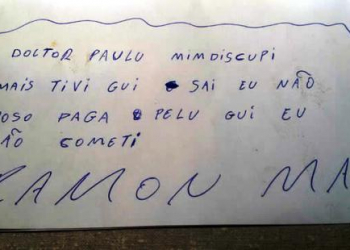 DOLTOR PAULU MIMDISCUPI
MAIS TIVI GUI SAI EU NÃO
POSO PAGA PELU GUI EU
ÃO COMETI
RAMON MA